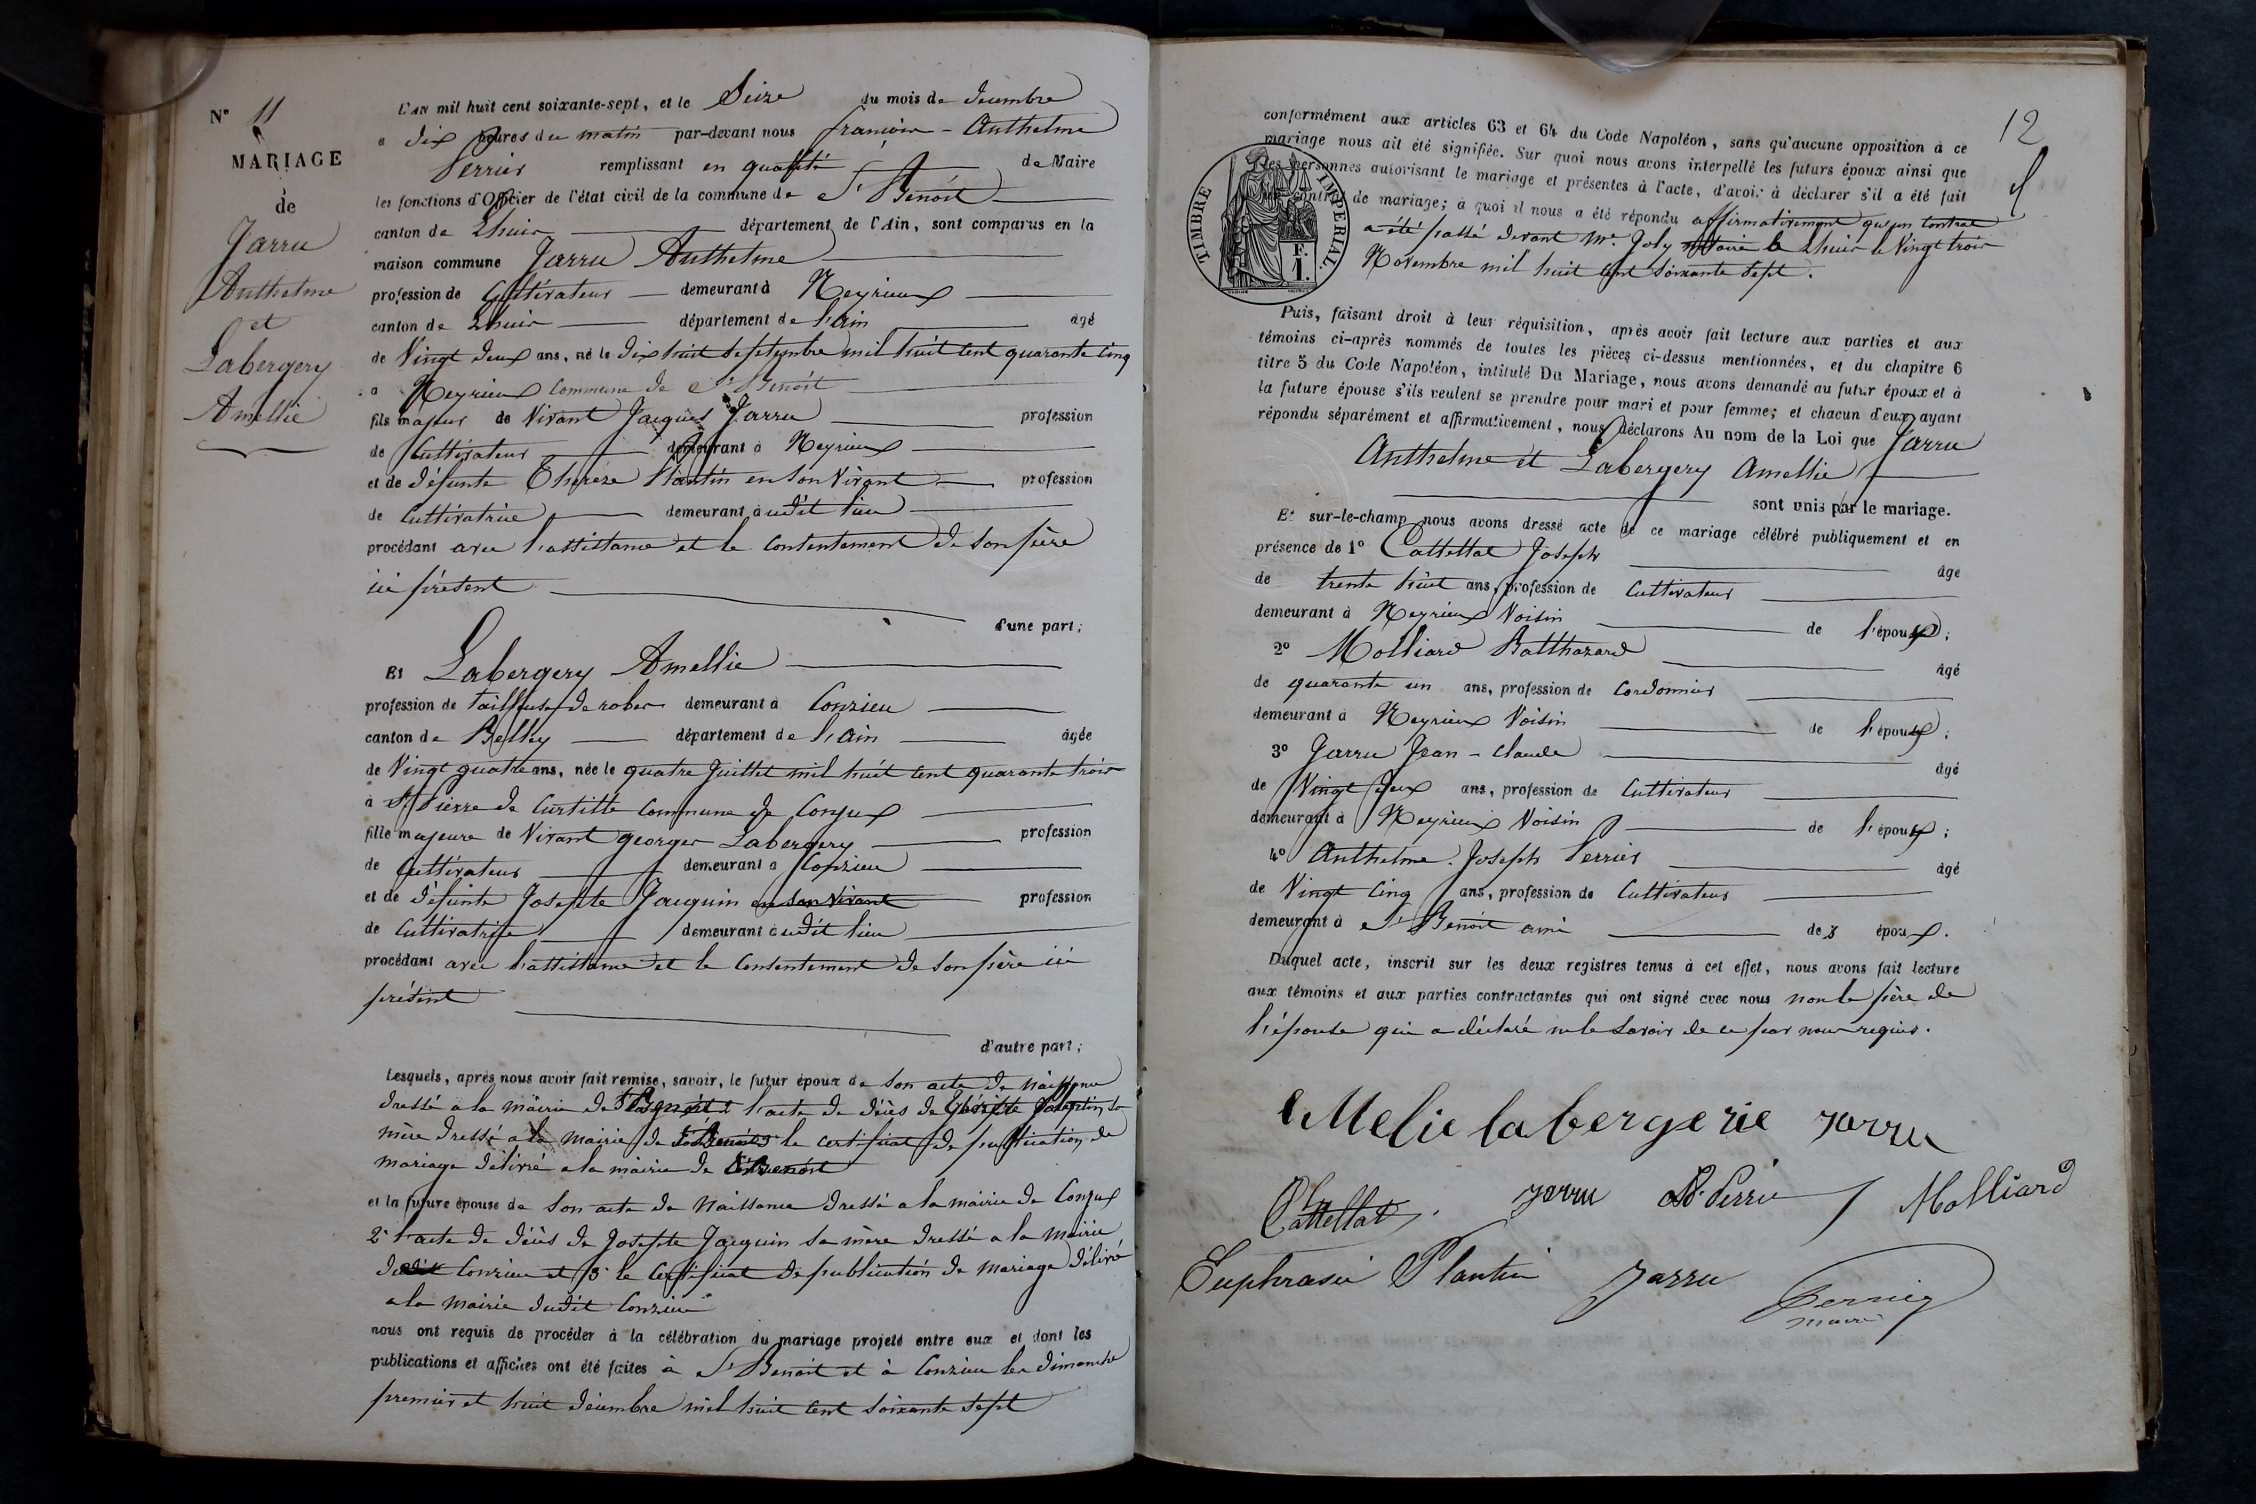 N° 11
MARIAGE
de
Jarru
Anthelme
et
Labergery
Amellie
L'AN mil huit cent soixante-sept, et le Seize du mois de décembre
a dix heures du matin par-devant nous françois - Anthelme
Perrier remplissant en qualité de Maire
les fonctions d'Officier de l'état civil de la commune de St Benoit
canton de Lhuis département de l'Ain, sont comparus en la
maison commune Jarru Anthelme
profession de Cultivateur demeurant à Meyrieux
canton de Lhuis département de l'ain âgé
de Vingt deux ans, né le dix huit septembre mil huit cent quarante cinq
a Meyrieux commune de St Benoit
fils majeur de Vivant Jacques Jarru profession
de Cultivateur demeurant à Meyrieux
et de défunte Thérèze Plantin en son Vivant profession
de Cultivatrice demeurant à udit lieu
procédant avec l'assistance et le consentement de son père
ici présent
d'une part;
Et Labergery Amellie
profession de tailleuse de robes demeurant à Conzieu
canton de Belley département de l'ain âgée
de Vingt quatre ans, née le quatre Juillet mil huit cent quarante trois
à St Pierre de Curtille commune de Conjux
fille majeure de Vivant georges Labergery profession
de Cultivateur demeurant a Conzieu
et de défunte Josephte Jacquin en son vivant profession
de Cultivatrice demeurant à udit lieu
procédant avec l'assistance et le consentement de son père ici
présent
d'autre part;
Lesquels, après nous avoir fait remise, savoir, le futur époux de son acte de naissance
dressé a la mairie de St Benoit 2° l'acte de décès de sa
mère dressé a la mairie de St Benoit 3° le certificat de publication de
mariage délivré a la mairie de St Benoit
et la future épouse de son acte de naissance dressé a la mairie de Conjux
2° l'acte de décès de Josephte Jacquin sa mère dressé a la mairie
de Conzieu et 3° le certificat de publication de mariage délivré
a la mairie dudit Conzieu
nous ont requis de procéder à la célébration du mariage projeté entre eux et dont les
publications et affiches ont été faites à St Benoit et à Conzieu les dimanche
premier et huit décembre mil huit cent soixante sept
12
conformément aux articles 63 et 64 du Code Napoléon, sans qu'aucune opposition à ce
mariage nous ait été signifiée. Sur quoi nous avons interpellé les futurs époux ainsi que
les personnes autorisant le mariage et présentes à l'acte, d'avoir à déclarer s'il a été fait
contrat de mariage; à quoi il nous a été répondu affirmativement qu'un contrat
a été passé devant Me. Joly notaire le Lhuis le Vingt trois
Novembre mil huit cent soixante sept.
TIMBRE IMPÉRIAL.
F.
1.
Puis, faisant droit à leur réquisition, après avoir fait lecture aux parties et aux
témoins ci-après nommés de toutes les pièces ci-dessus mentionnées, et du chapitre 6
titre 5 du Code Napoléon, intitulé Du Mariage, nous avons demandé au futur époux et à
la future épouse s'ils veulent se prendre pour mari et pour femme; et chacun d'eux ayant
répondu séparément et affirmativement, nous déclarons Au nom de la Loi que Jarru
Anthelme et Labergery Amellie
sont unis par le mariage.
Et sur-le-champ nous avons dressé acte de ce mariage célébré publiquement et en
présence de 1° Cattellat Joseph âgé
de trente huit ans, profession de Cultivateur
demeurant à Meyrieux Voisin de l'époux;
2° Molliard Balthazard âgé
de quarante un ans, profession de Cordonnier
demeurant à Meyrieux Voisin de l'époux;
3° Jarru Jean - claude âgé
de Vingt deux ans, profession de Cultivateur
demeurant à Meyrieux Voisin de l'époux;
4° Anthelme. Joseph Perrier âgé
de Vingt cinq ans, profession de Cultivateur
demeurant à St Benoit ami des époux.
Duquel acte, inscrit sur les deux registres tenus à cet effet, nous avons fait lecture
aux témoins et aux parties contractantes qui ont signé avec nous non le père de
l'épouse qui a déclaré ne le savoir de ce par nous requis.
Melie labergerie Jarru
Cattellat Jarru Perrie Molliard
Euphrasie Plantin Jarru Perrier
maire